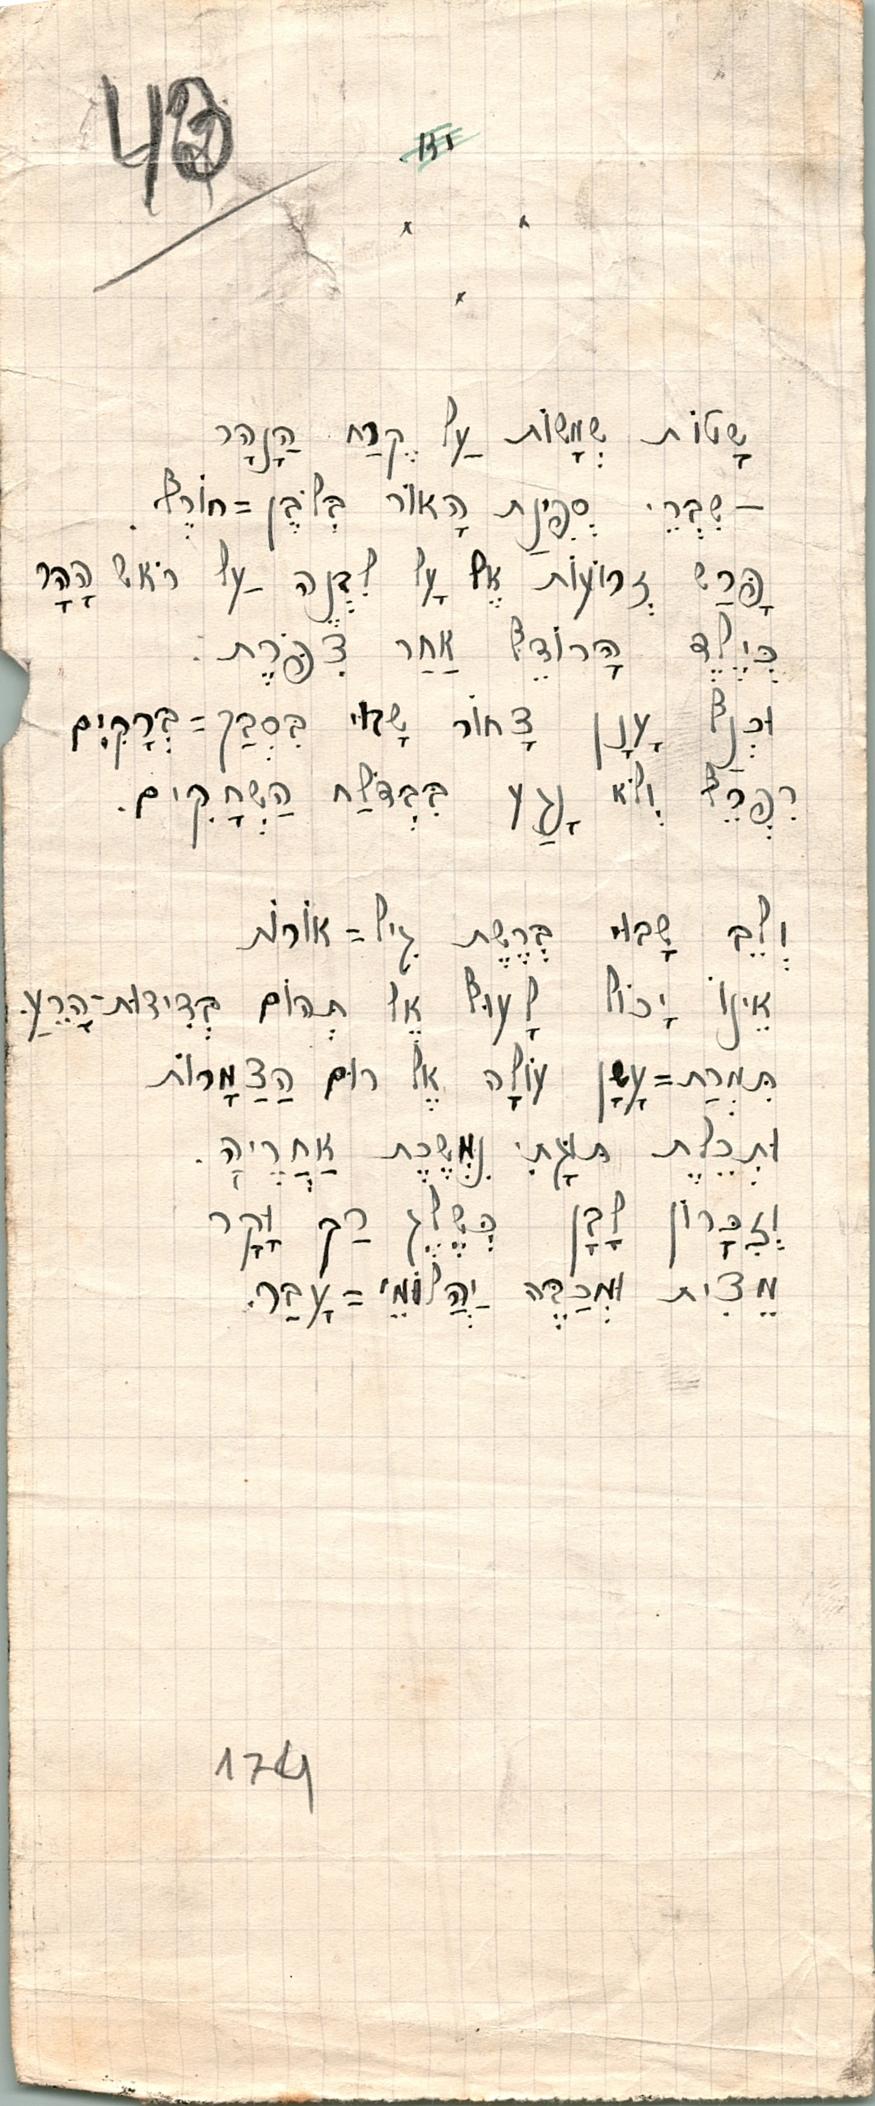 43
שָׁטוֹת שְׁמָשׁוֹת עַל קֶרַח הַנָּהָר
– שִׁבְרֵי סְפִינַת הָאוֹר בְּלֹבֶן=חוֹרֶף.
פָּרַשׂ זְרוֹעוֹת אֶל עָל לִבְנֶה עַל רֹאשׁ הָהָר
כְּיֶלֶד הָרוֹדֵף אַחַר צִפֹּרֶת.
וּכְנַף עָנָן צָחוֹר שָׁבוּי בִּסְבַך=בְּרָקִים
רִפְרֵף וְלֹא נָגַע בִּבְדֹלַח הַשְּׁחָקִים.
וְלֵב שָׁבוּי בְּרֶשֶׁת גִּיל=אוֹרוֹת
אֵינוֹ יָכוֹל לָעוּף אֶל תְּהוֹם בְּדִידוּת-הָרֵעַ.
תִּמְרַת=עָשָׁן עוֹלָה אֶל רוּם הַצַּמָּרוֹת
וּתְכֵלֶת תּוּגָתִי נִמְשֶׁכֶת אַחֲרֶיהָ.
וְזִכָּרוֹן לָבָן כְּשֶׁלֶג רַך וָקָר
מֵצִית וּמְכַבֶּה יַהֲלוֹמֵי=עָבַר.
174